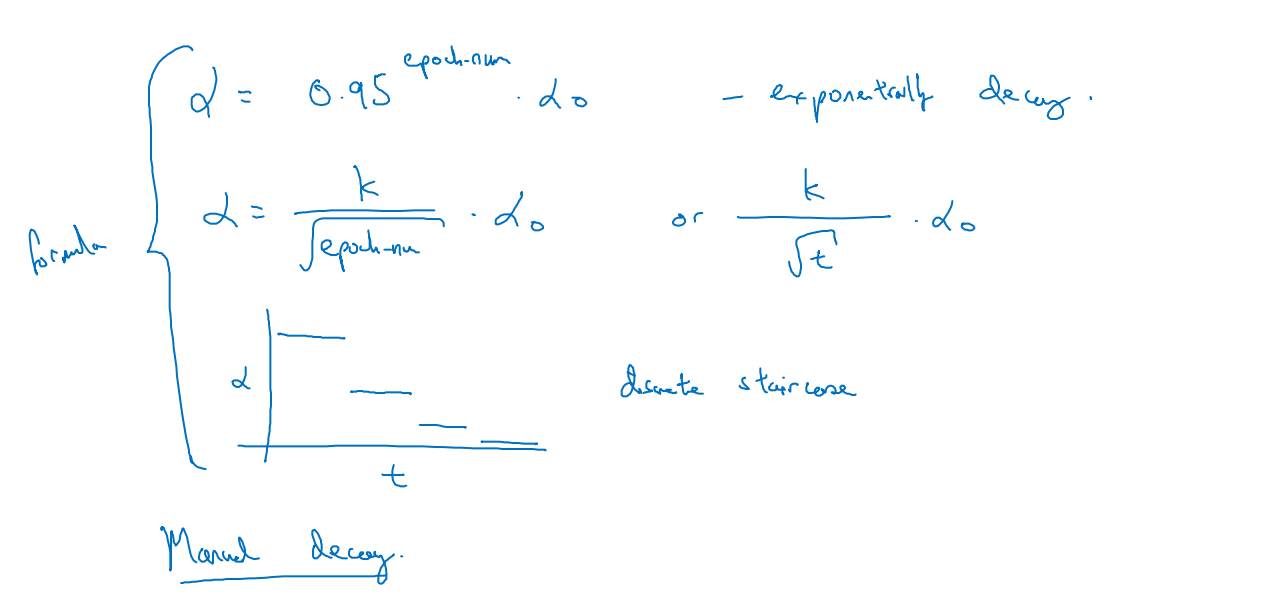 α = 0.95^epoch-num · α₀ – exponentially decay.
α = k/√epoch-num · α₀ or k/√t · α₀
formula
α discrete staircase
t
Manual decay.